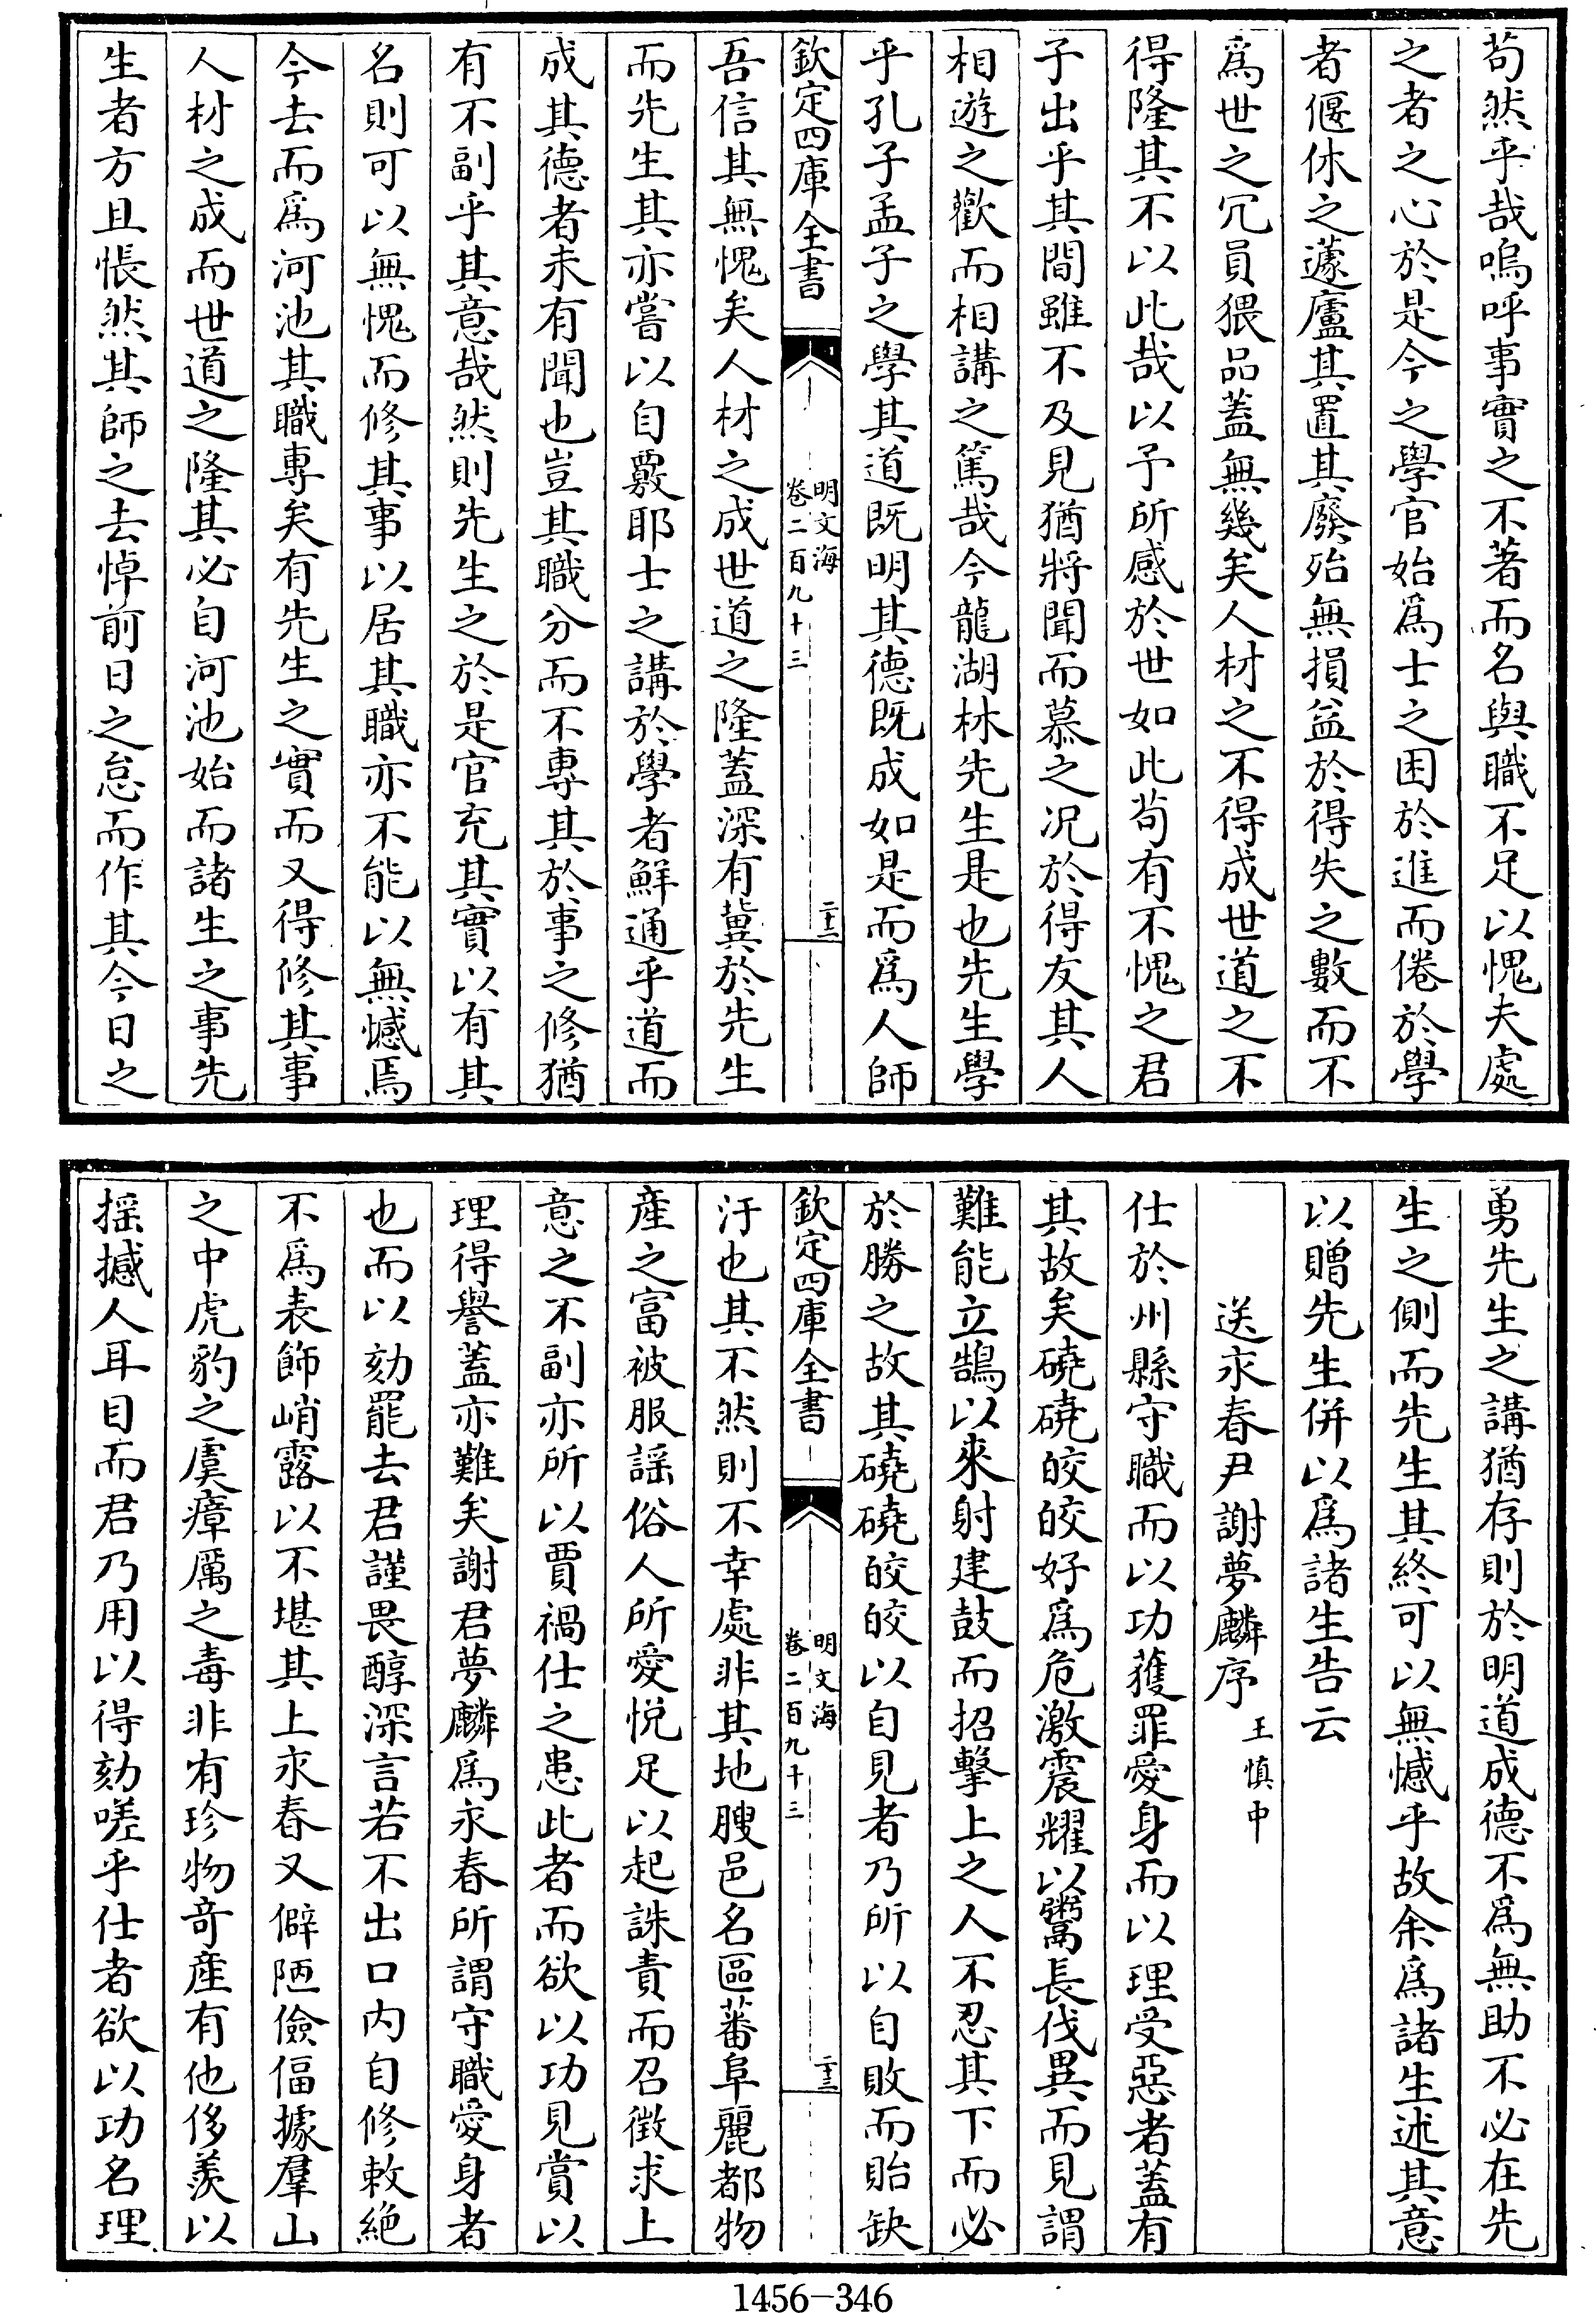 苟然乎哉嗚呼事實之不著而名與職不足以愧夫處
之者之心於是今之學官始爲士之困於進而倦於學
者偃休之蘧廬其置其廢殆無損益於得失之數而不
爲世之冗員猥品蓋無幾矣人材之不得成世道之不
得隆其不以此哉以予所感於世如此苟有不愧之君
子出乎其間雖不及見猶將聞而慕之况於得友其人
相遊之歡而相講之篤哉今龍湖林先生是也先生學
乎孔子孟子之學其道既明其德既成如是而爲人師
欽定四庫全書
明文海
卷二百九十三
二十二
吾信其無愧矣人材之成世道之隆蓋深有冀於先生
而先生其亦嘗以自覈耶士之講於學者鮮通乎道而
成其德者未有聞也豈其職分而不專其於事之修猶
有不副乎其意哉然則先生之於是官充其實以有其
名則可以無愧而修其事以居其職亦不能以無憾焉
今去而爲河池其職專矣有先生之實而又得修其事
人材之成而世道之隆其必自河池始而諸生之事先
生者方且悵然其師之去悼前日之怠而作其今日之
勇先生之講猶存則於明道成德不爲無助不必在先
生之側而先生其終可以無憾乎故余爲諸生述其意
以贈先生併以爲諸生告云
送永春尹謝夢麟序 王慎中
仕於州縣守職而以功獲罪愛身而以理受惡者蓋有
其故矣磽磽皎皎好爲危激震耀以鬻長伐異而見謂
難能立鵠以來射建鼓而招擊上之人不忍其下而必
於勝之故其磽磽皎皎以自見者乃所以自敗而貽缺
欽定四庫全書
明文海
卷二百九十三
二十三
汙也其不然則不幸處非其地腴邑名區蕃阜麗都物
產之富被服謡俗人所愛悅足以起誅責而召徵求上
意之不副亦所以賈禍仕之患此者而欲以功見賞以
理得譽蓋亦難矣謝君夢麟爲永春所謂守職愛身者
也而以劾罷去君謹畏醇深言若不出口内自修敕絶
不爲表飾峭露以不堪其上永春又僻陋儉偪據羣山
之中虎豹之虞瘴厲之毒非有珍物奇産有他侈羨以
揺撼人耳目而君乃用以得劾嗟乎仕者欲以功名理
1456-346